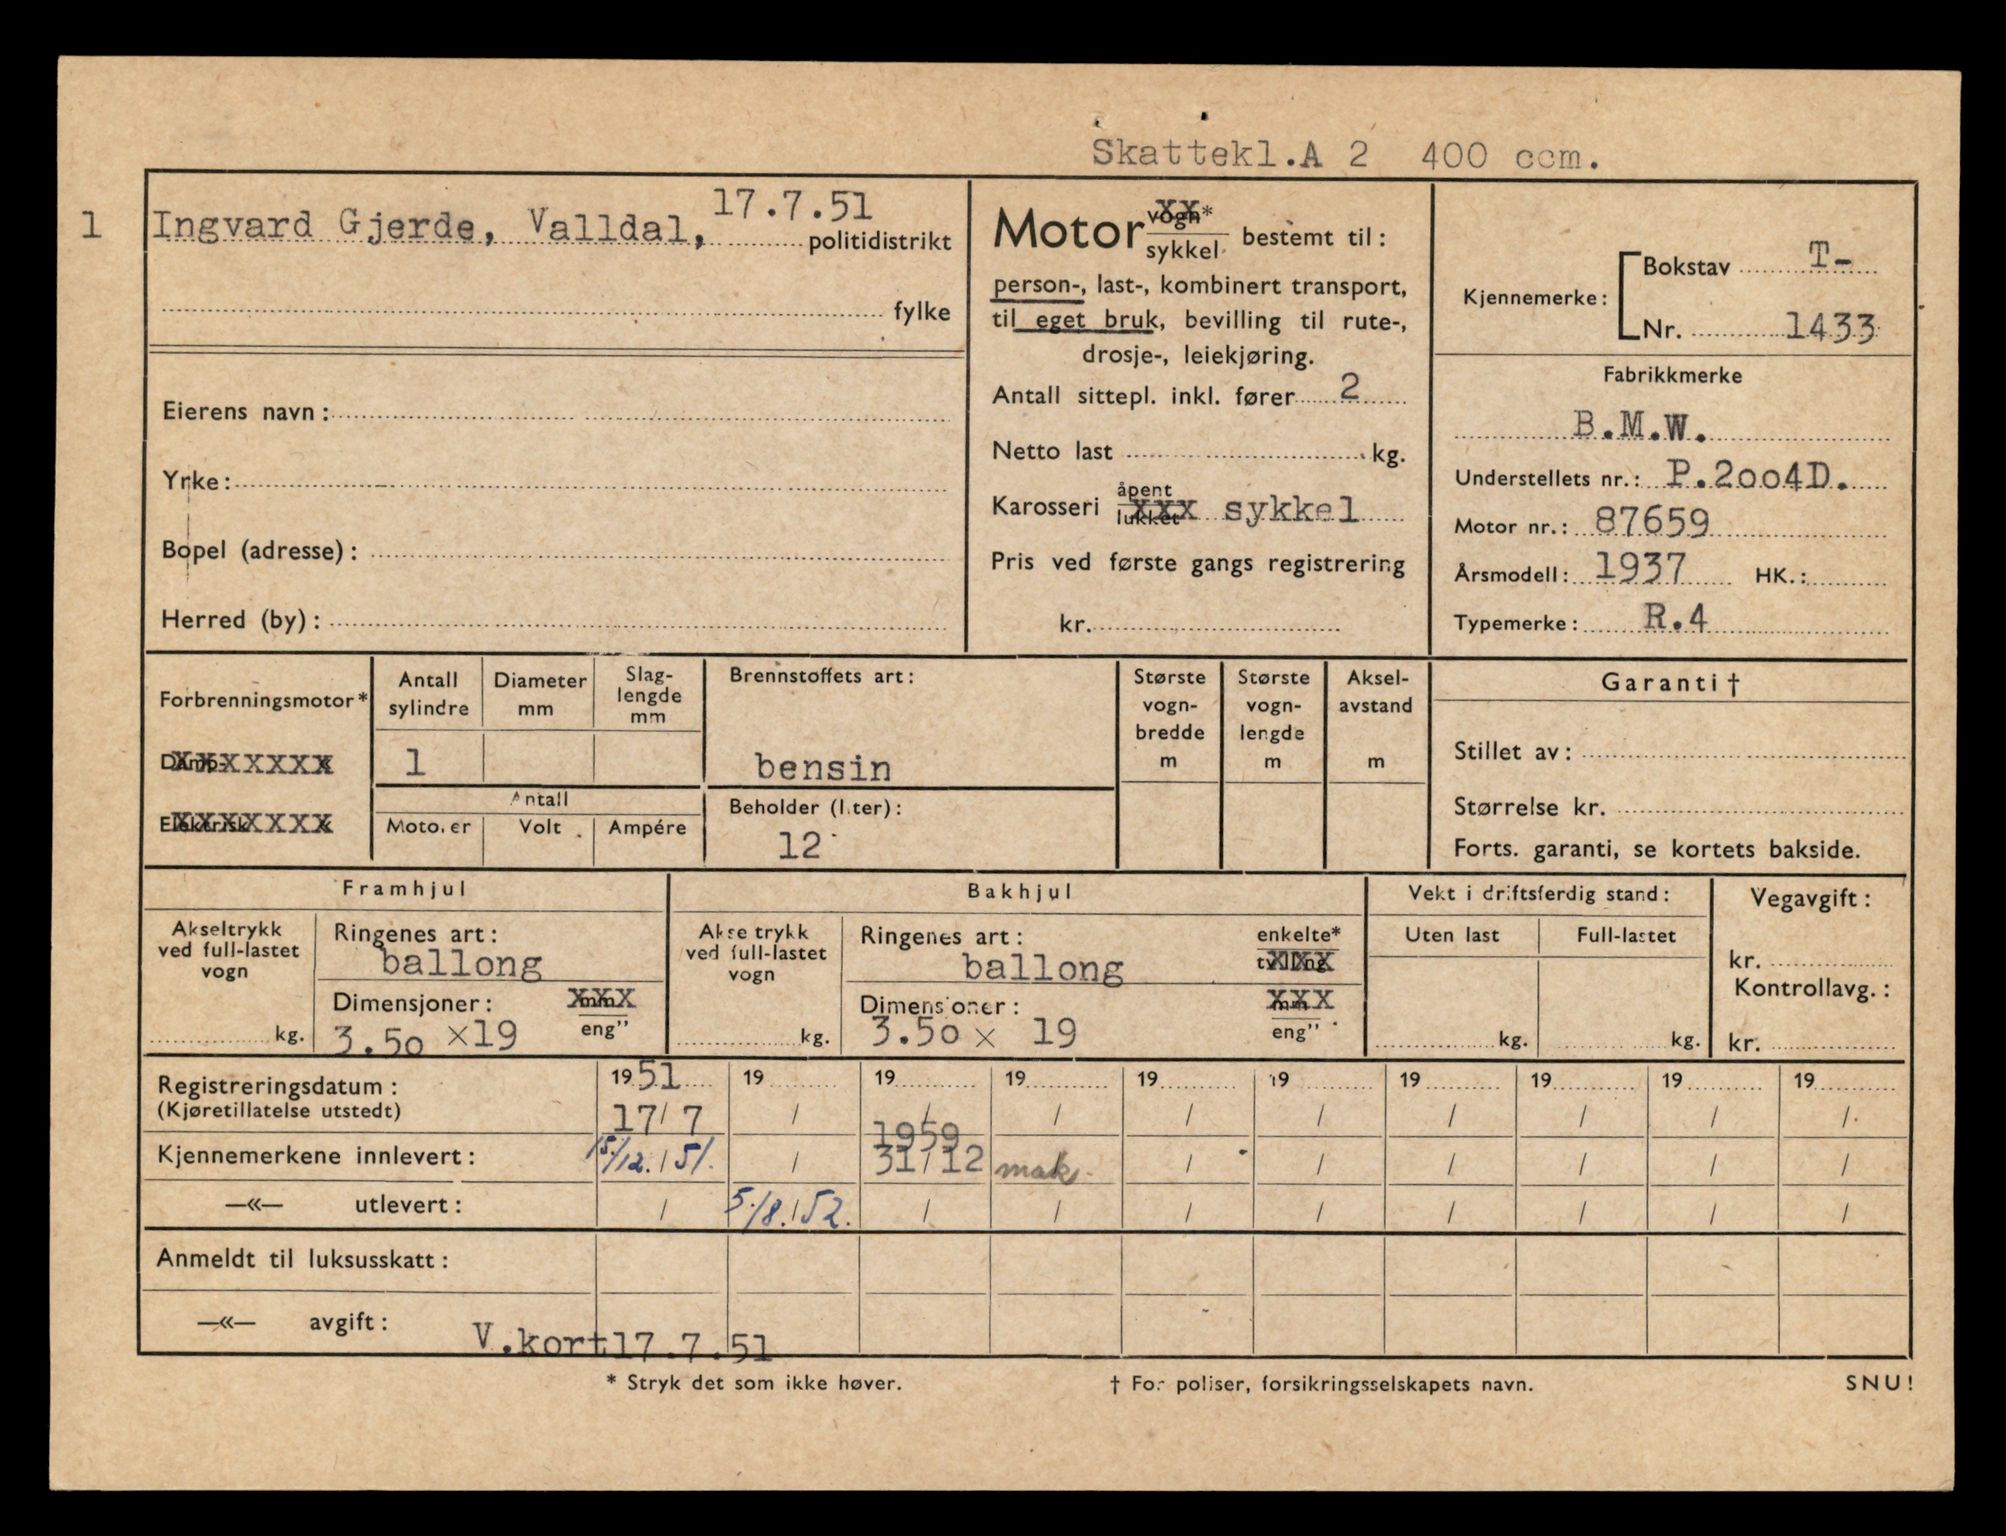 Skattekl.A 2 400 ccm.
1 Ingvard Gjerde, Valldal, 17.7.51 politidistrikt
fylke
Eierens navn:
Yrke:
Bopel (adresse):
Herred (by):
Motor vogn* sykkel bestemt til:
person-, last-, kombinert transport,
til eget bruk, bevilling til rute-,
drosje-, leiekjøring.
Antall sittepl. inkl. fører 2
Netto last kg.
Karosseri åpent lukket xxx sykkel
Pris ved første gangs registrering
kr.
Kjennemerke: Bokstav T-
Nr. 1433
Fabrikkmerke
B.M.W.
Understellets nr.: P.2004D.
Motor nr.: 87659
Årsmodell: 1937 HK.:
Typemerke: R.4
Forbrenningsmotor*
Damp- xxxxxxx
Elektrisk xxxxxxx
Antall sylindre
1
Diameter mm
Slag-lengde mm
Antall
Motorer Volt Ampére
Brennstoffets art:
bensin
Beholder (liter):
12
Største vogn-bredde m
Største vogn-lengde m
Aksel-avstand m
Garanti †
Stillet av:
Størrelse kr.
Forts. garanti, se kortets bakside.
Framhjul
Akseltrykk ved full-lastet vogn
kg.
Ringenes art:
ballong
Dimensjoner: mm xxx eng"
3.50 x19
Bakhjul
Akseltrykk ved full-lastet vogn
kg.
Ringenes art: enkelte*
ballong tvilling xxxx
Dimensjoner: mm xxx eng"
3.50 x 19
Vekt i driftsferdig stand:
Uten last Full-lastet
kg. kg.
Vegavgift:
kr.
Kontrollavg.:
kr.
Registreringsdatum: 1951 19 19 19 19 19 19 19 19 19
(Kjøretillatelse utstedt) 17/7 / / / / / / / / /
1959
Kjennemerkene innlevert: 15/12. / 51. / 31/12 mak. / / / / / /
—«— utlevert: / 5./8./52. / / / / / / / /
Anmeldt til luksusskatt:
—«— avgift:
V.kort17.7.51
* Stryk det som ikke høver. † For poliser, forsikringsselskapets navn. SNU!